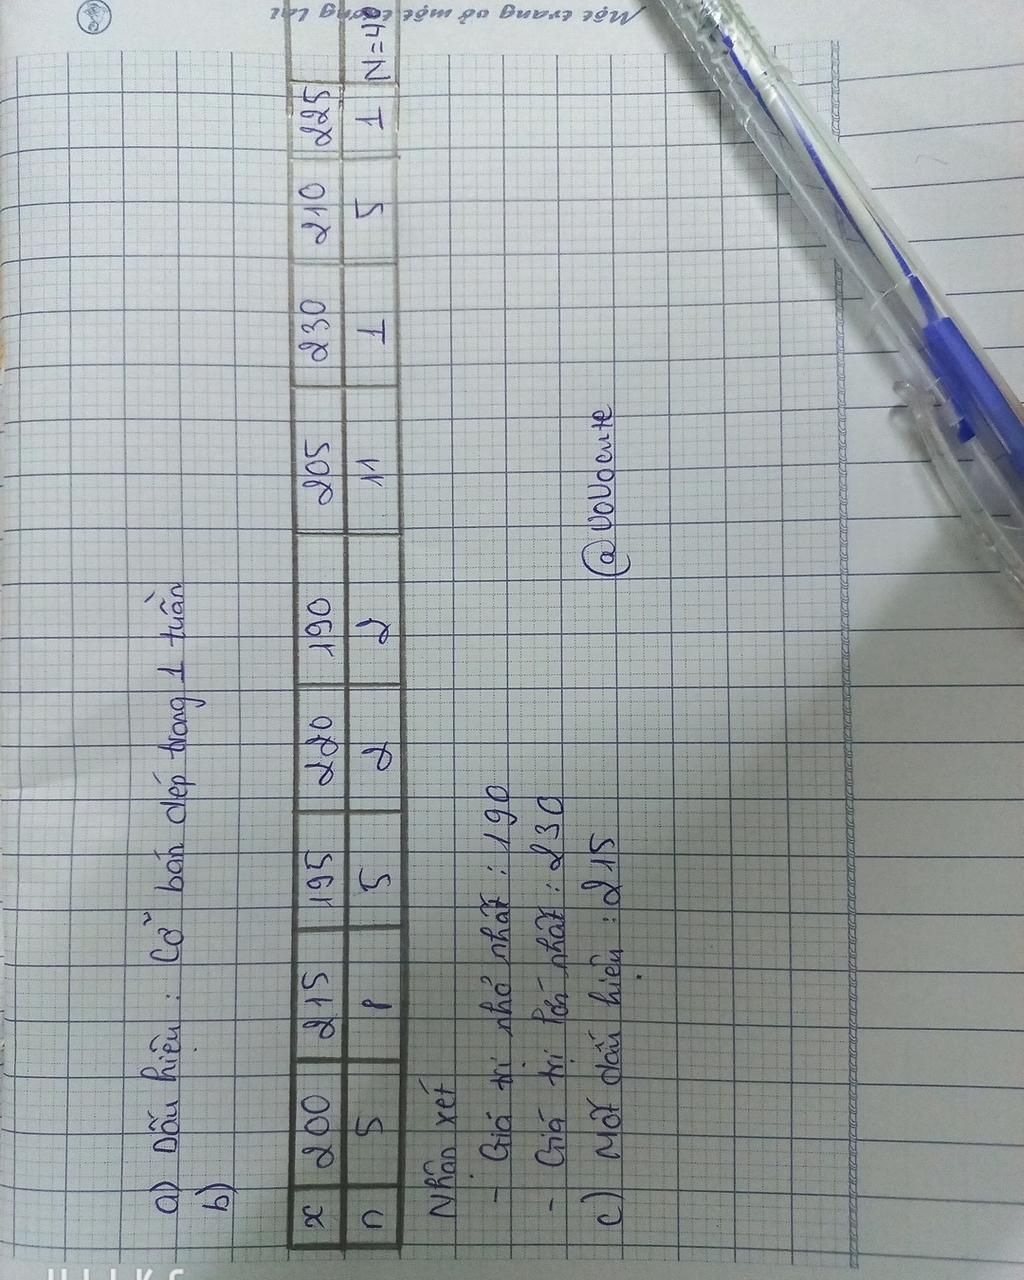 Một trang vở một tương lai
a) Dấu hiệu : Cỡ bán dép trong 1 tuần
b)
x 200 215 195 220 190 205 230 210 225
n 5 5 2 2 11 1 5 1 N=40
Nhận xét
- Giá trị nhỏ nhất : 190
- Giá trị lớn nhất : 230
c) Mốt dấu hiệu : 215
@vovocute